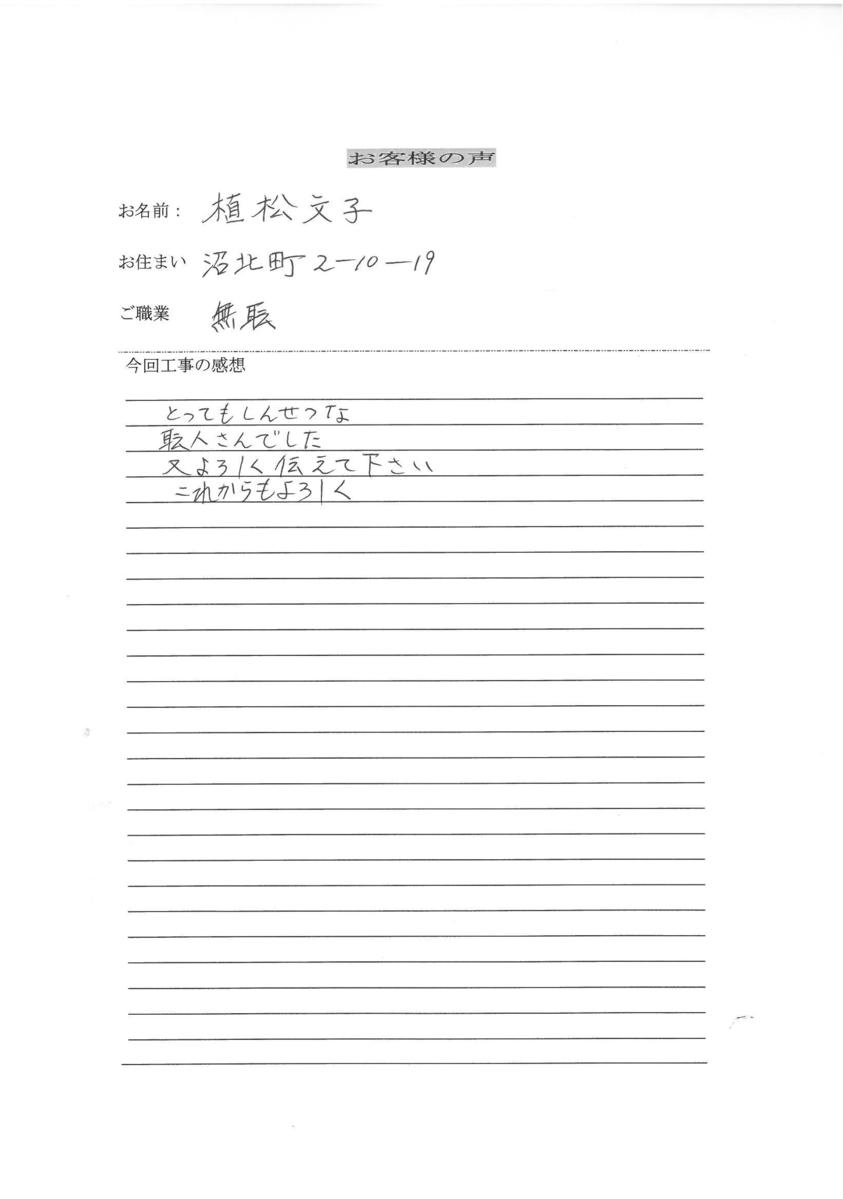 お客様の声
お名前： 植松文子
お住まい 沼北町2-10-19
ご職業 無耺
今回工事の感想
とってもしんせつな
耺人さんでした
又よろしく伝えて下さい
これからもよろしく